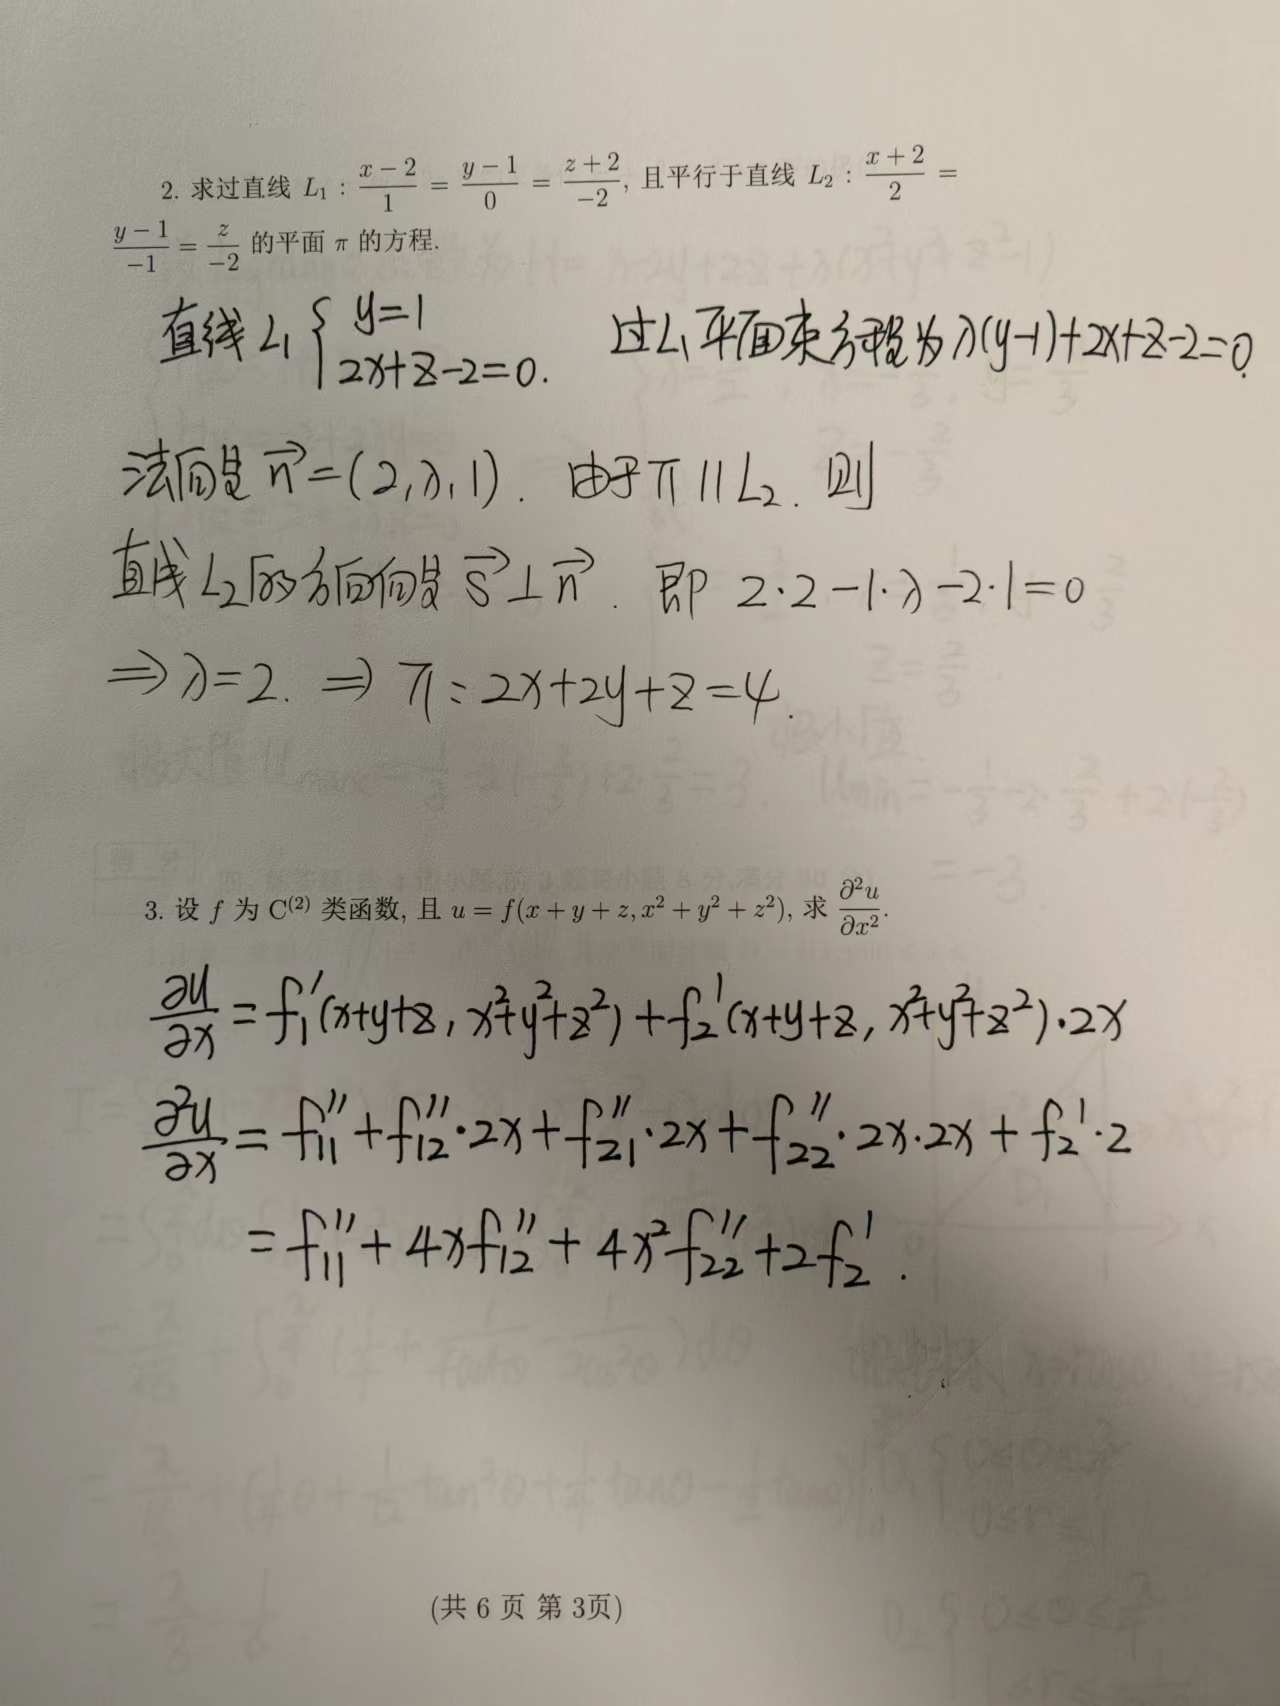 2. 求过直线 L₁ : (x − 2)/1 = (y − 1)/0 = (z + 2)/−2, 且平行于直线 L₂ : (x + 2)/2 =
(y − 1)/−1 = z/−2 的平面 π 的方程.
直线 L₁ { y=1 2x+z-2=0. 过L₁平面束方程为 λ(y-1)+2x+z-2=0.
法向量 n⃗=(2,λ,1). 由于π//L₂. 则
直线L₂的方向向量 s⃗⊥n⃗. 即 2·2-1·λ-2·1=0
⇒λ=2. ⇒ π: 2x+2y+z=4.
3. 设 f 为 C⁽²⁾ 类函数, 且 u = f(x + y + z, x² + y² + z²), 求 ∂²u/∂x².
∂u/∂x = f₁'(x+y+z, x²+y²+z²)+f₂'(x+y+z, x²+y²+z²)·2x
∂²u/∂x = f₁₁''+f₁₂''·2x+f₂₁''·2x+f₂₂''·2x·2x+f₂'·2
= f₁₁''+4xf₁₂''+4x²f₂₂''+2f₂'.
(共 6 页 第 3页)